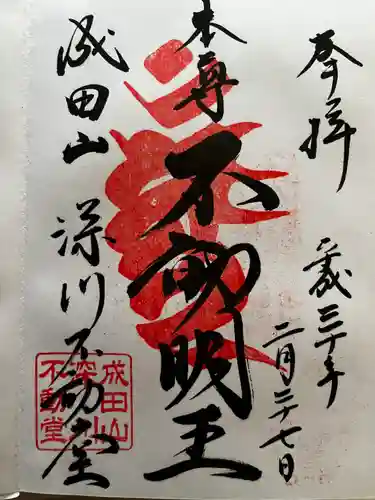 奉拝
平成三十年
二月二十七日
本尊
不動明王
成田山
深川不動堂
成田山
深川
不動堂